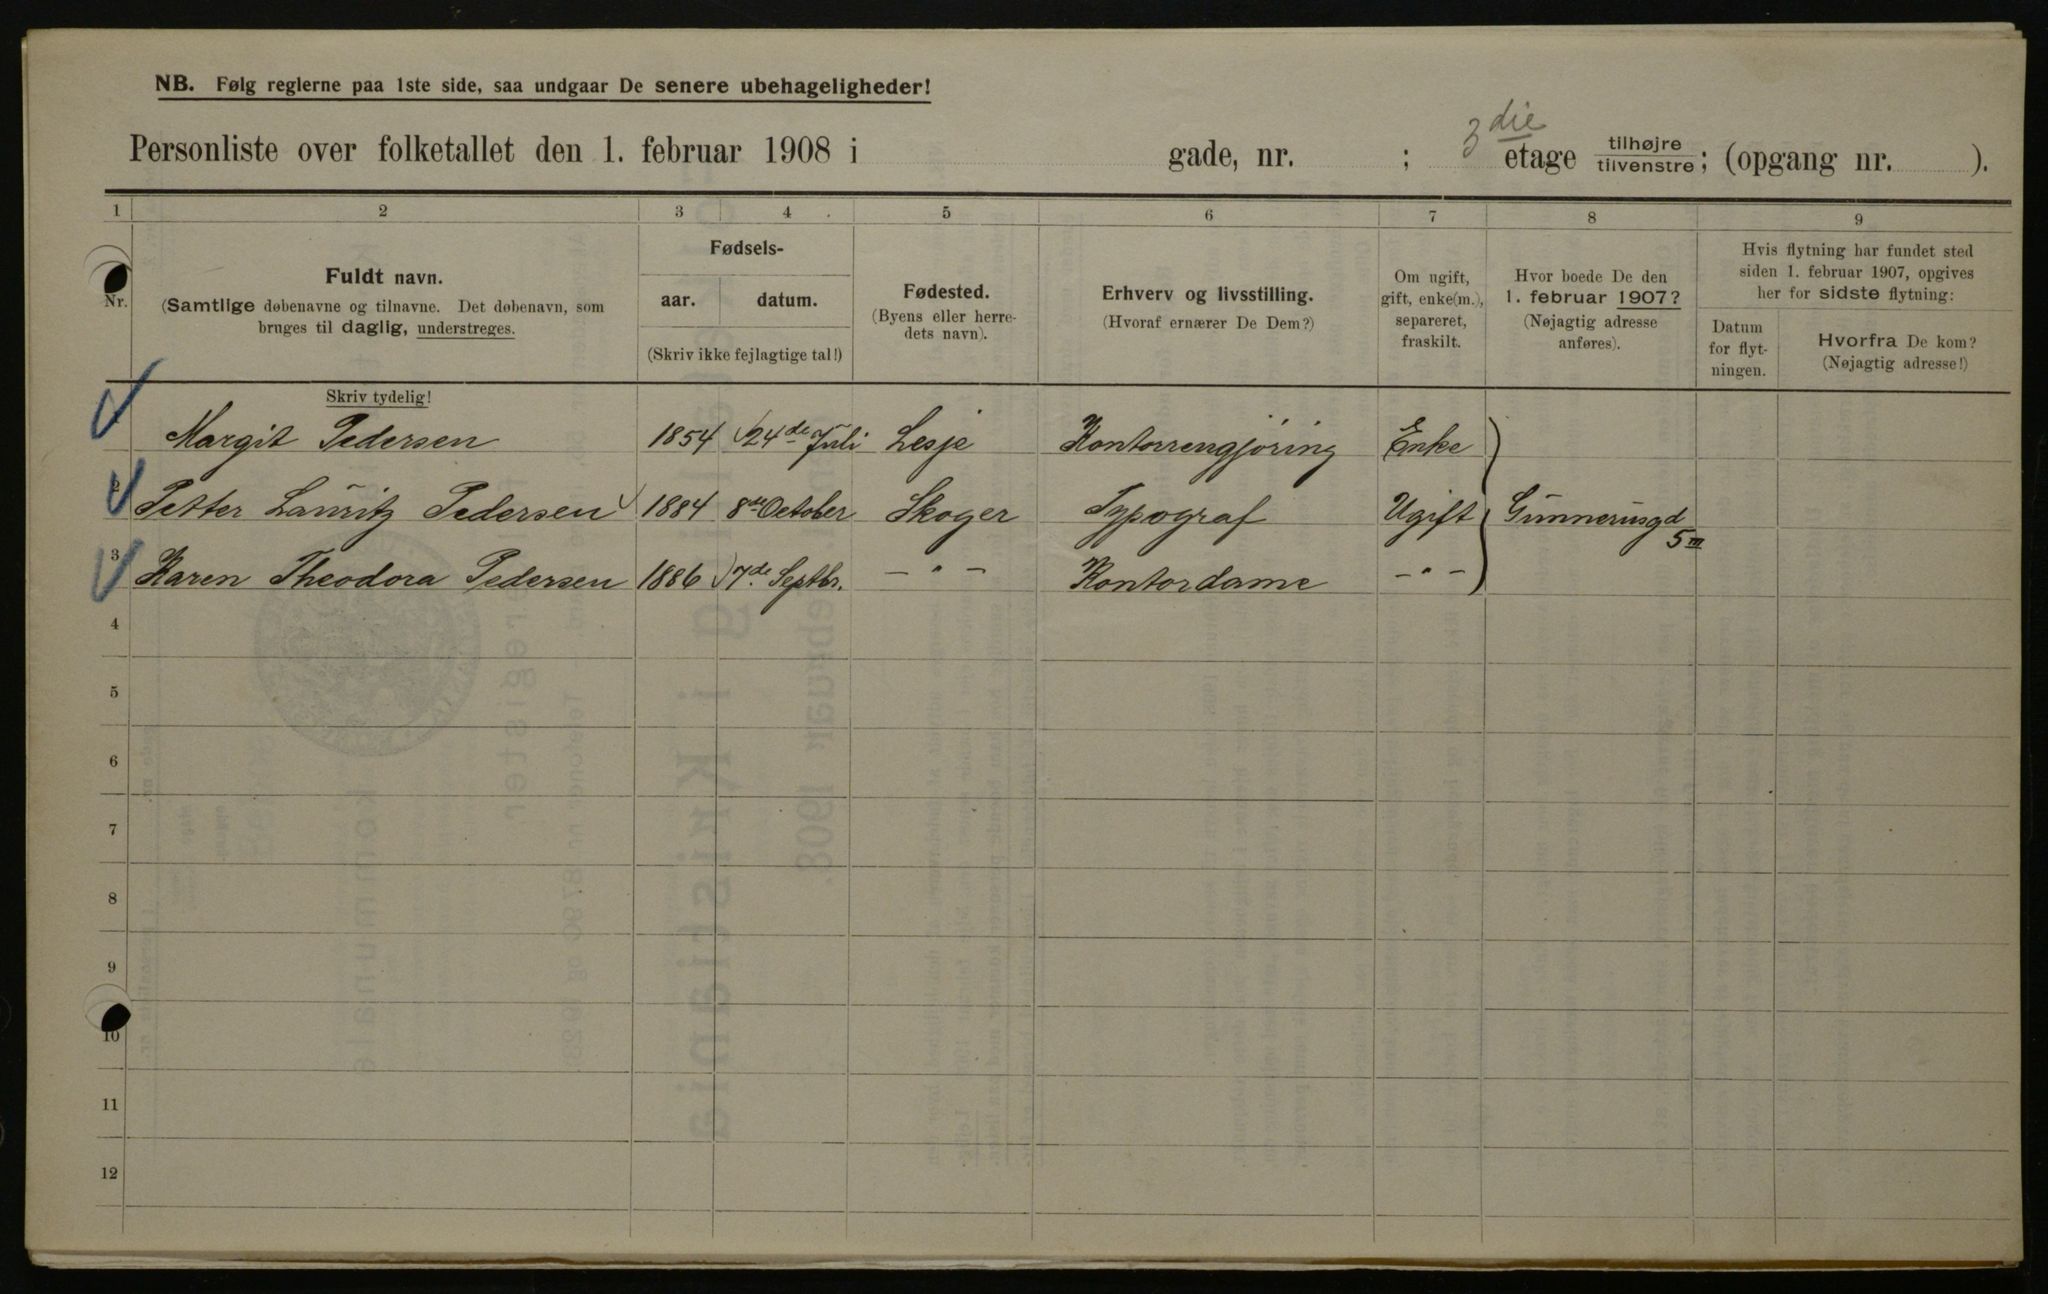 NB. Følg reglerne paa 1ste side, saa undgaar De senere ubehageligheder!
Personliste over folketallet den 1. februar 1908 i gade, nr. ; 3die etage tilhøjre tilvenstre; (opgang nr. ).
1 2 3 4 5 6 7 8 9
Nr.
Fuldt navn.
(Samtlige døbenavne og tilnavne. Det døbenavn, som
bruges til daglig, understreges.
Skriv tydelig!
Fødsels-
aar. datum.
(Skriv ikke fejlagtige tal!)
Fødested.
(Byens eller herre-
dets navn).
Erhverv og livsstilling.
(Hvoraf ernærer De Dem?)
Om ugift,
gift, enke(m.),
separeret,
fraskilt.
Hvor boede De den
1. februar 1907?
(Nøjagtig adresse
anføres).
Hvis flytning har fundet sted
siden 1. februar 1907, opgives
her for sidste flytning:
Datum
for flyt-
ningen.
Hvorfra De kom?
(Nøjagtig adresse!)
Margit Pedersen 1854 24de Juli Lesje Kontorrengjøring Enke
2 Petter Lauritz Pedersen 1884 8de October Skoger Typograf Ugift Gunnerusgd
5 III
3 Karen Theodora Pedersen 1886 7de Septbr. — " — Kontordame — " —
4
5
6
7
8
9
10
11
12